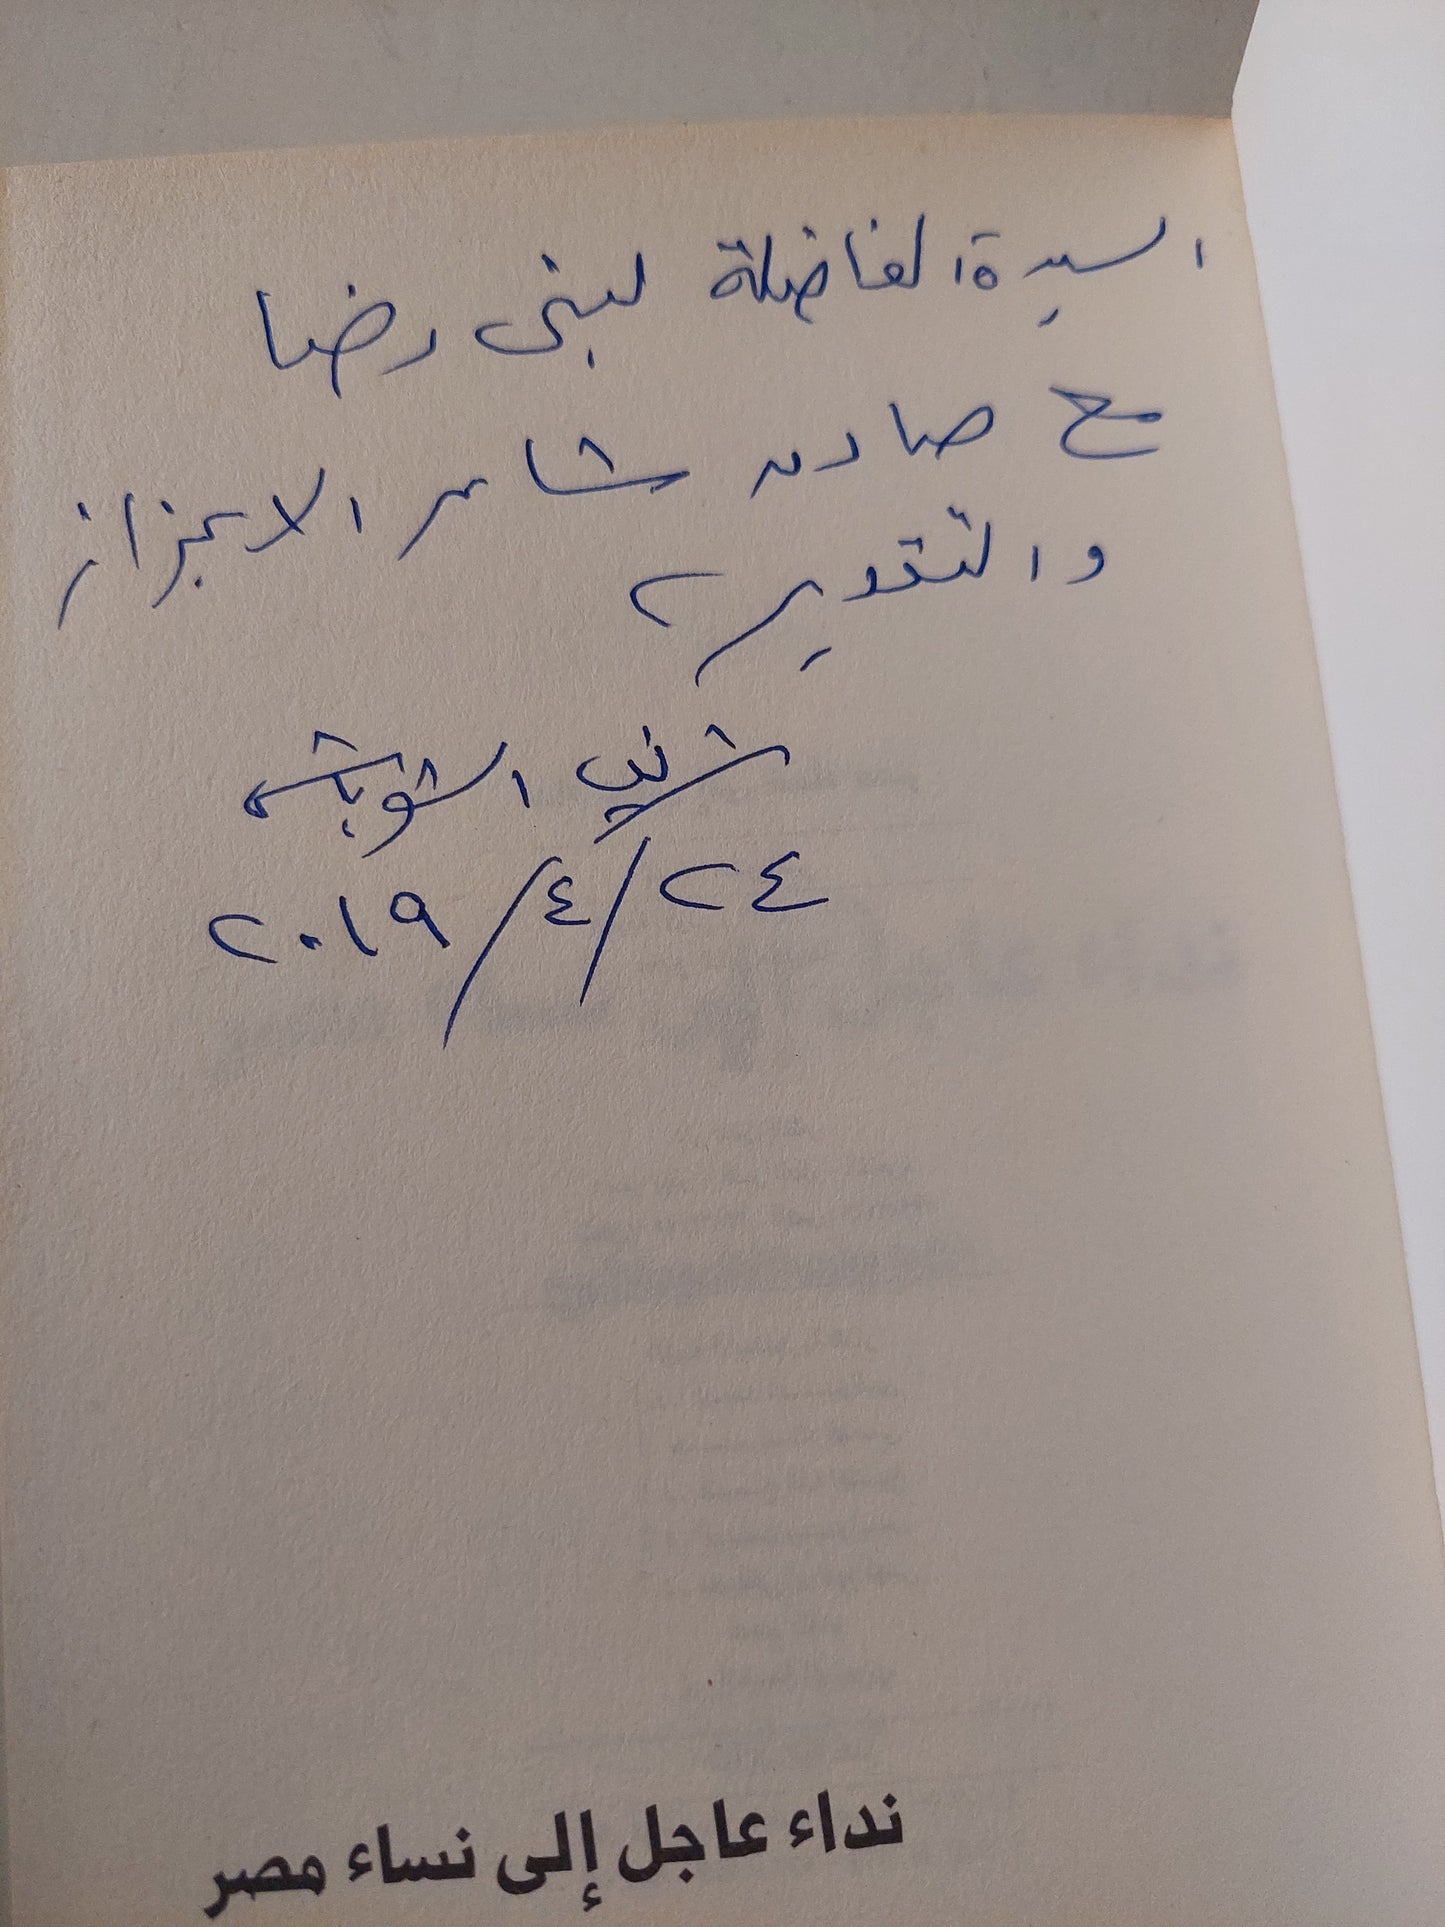 السيدة الفاضلة لبنى رضا
مع صادق مشاعر الاعزاز
والتقدير
شريف الشوباشى
٢٤/٤/٢٠١٩
نداء عاجل إلى نساء مصر